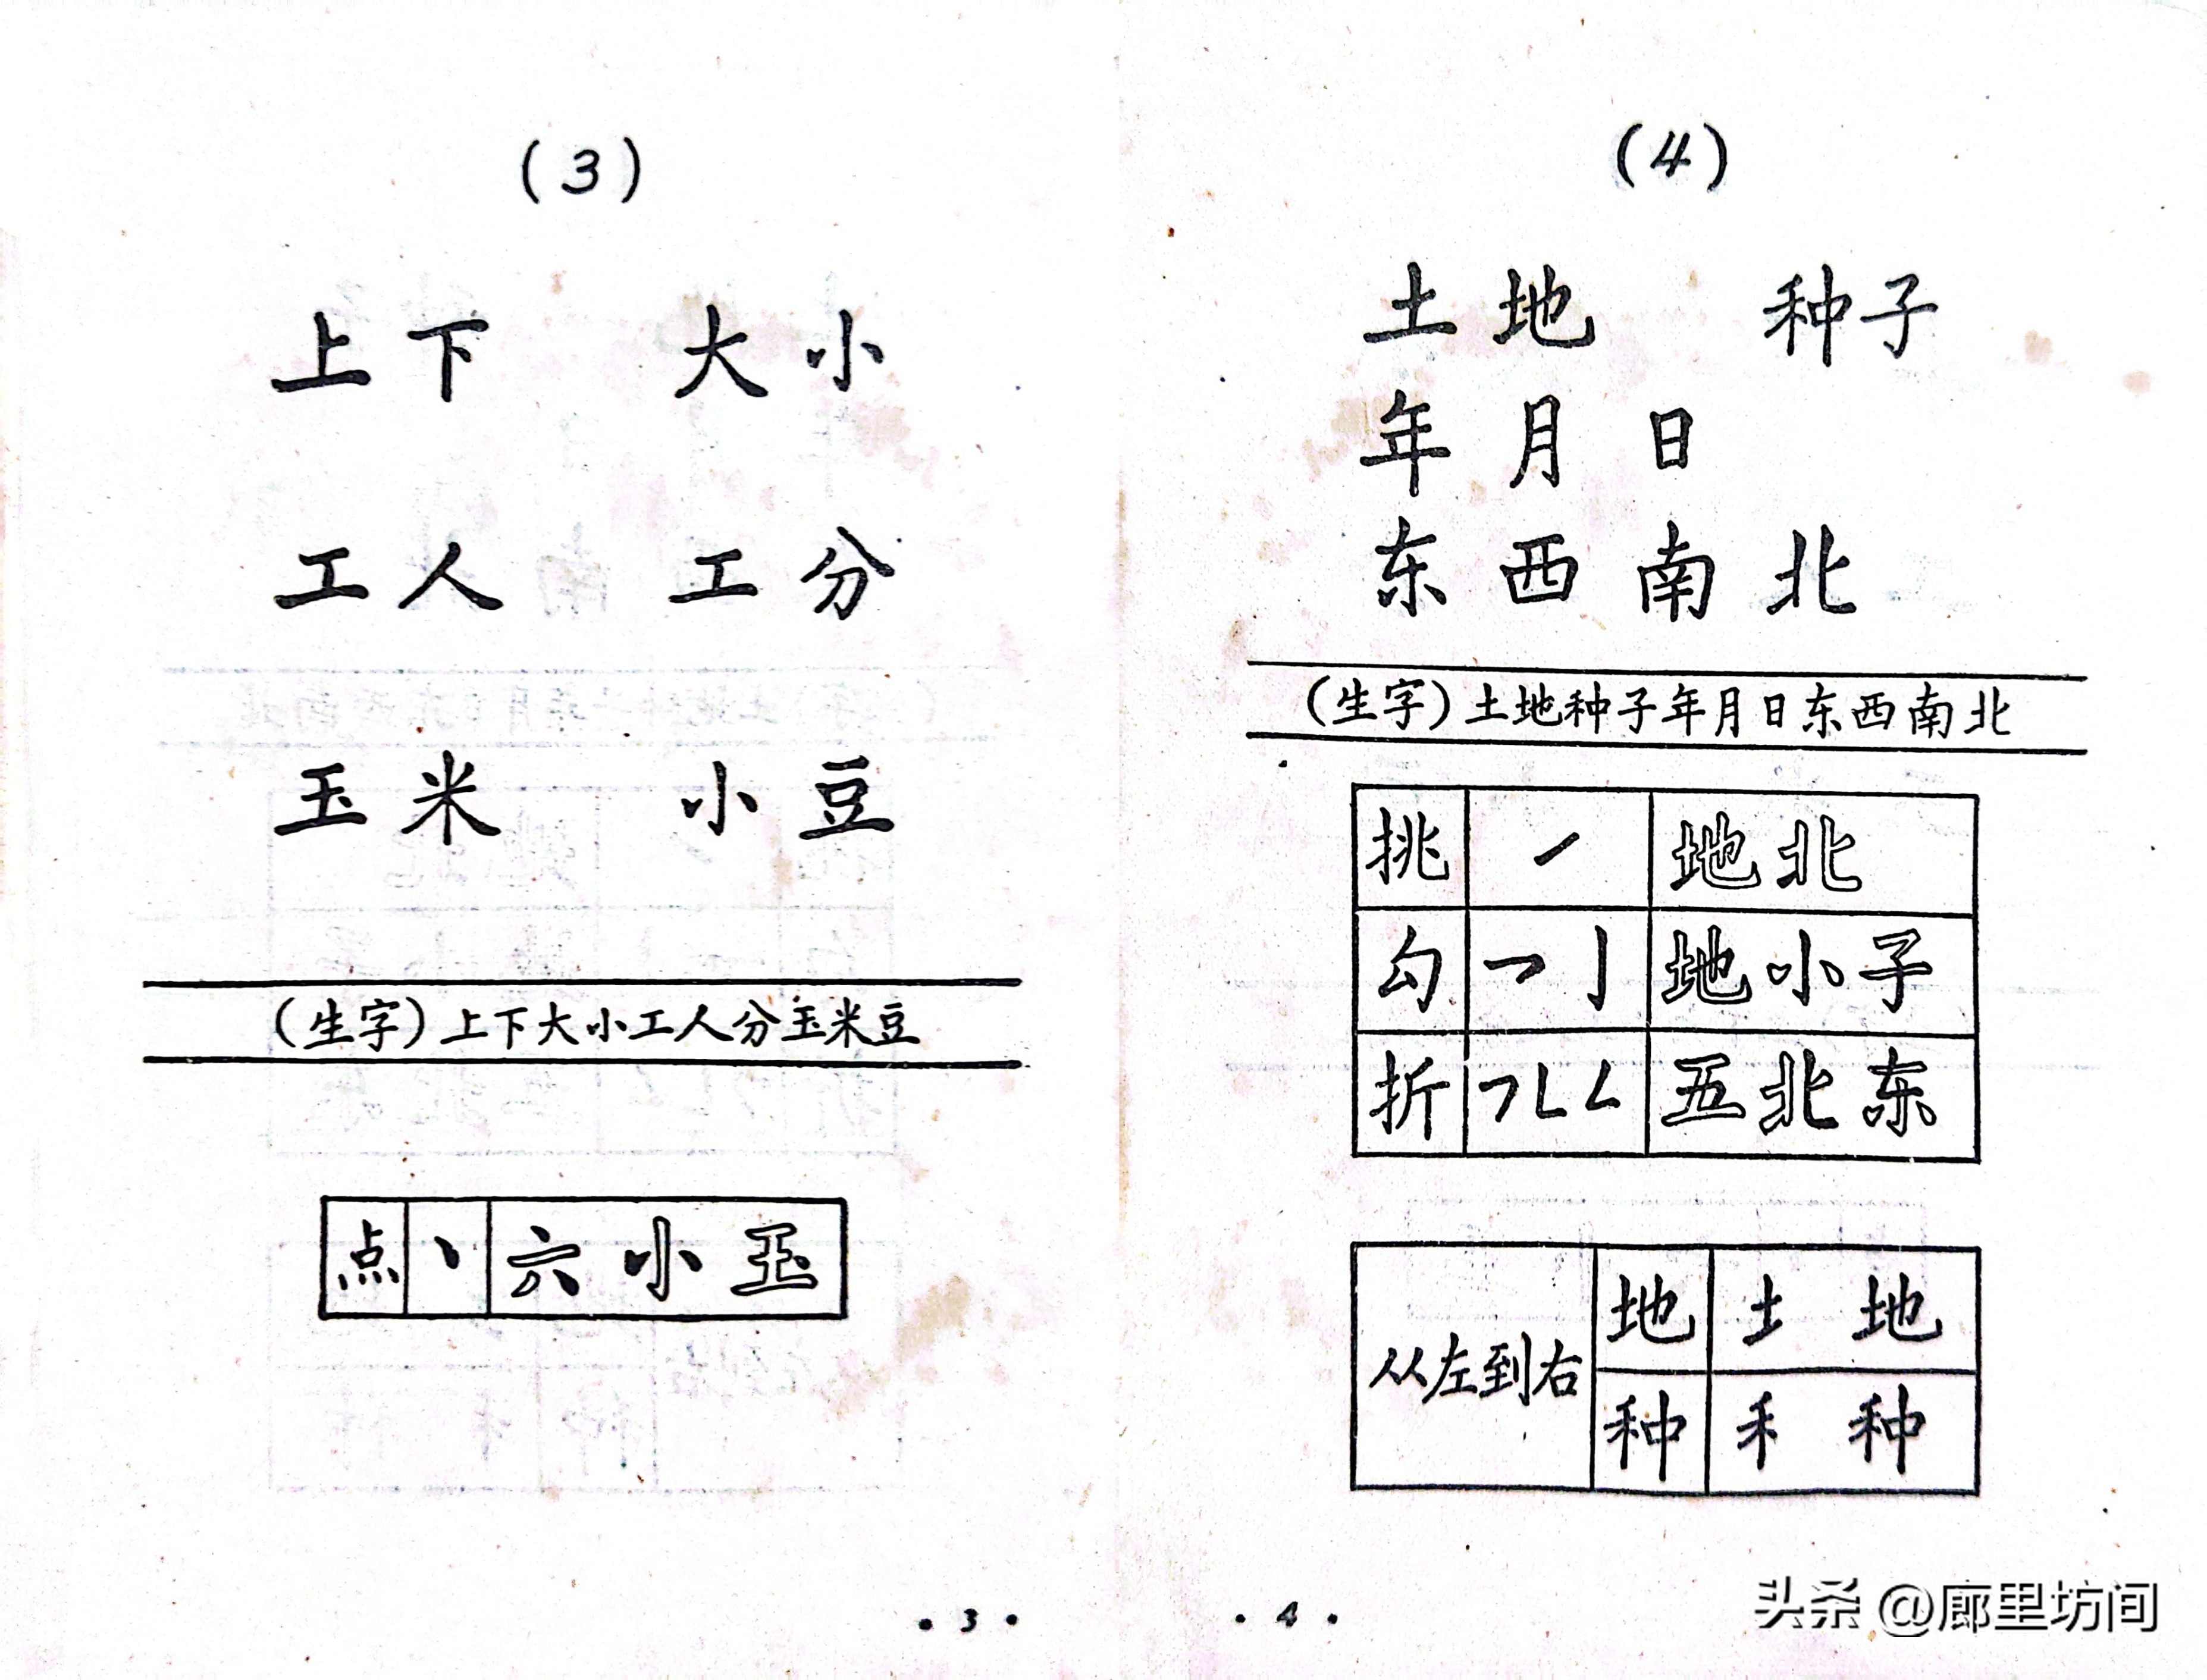 (3)
上下 大小
工人 工分
玉米 小豆
(生字)上下大小工人分玉米豆
点 丶 六小玉
·3·
(4)
土地 种子
年月日
东西南北
(生字)土地种子年月日东西南北
挑 ㇀ 地北
勾 乛亅 地小子
折 ㇕𠃊𠃋 五北东
从左到右
地 土 地
种 禾 种
·4·
头条 @廊里坊间